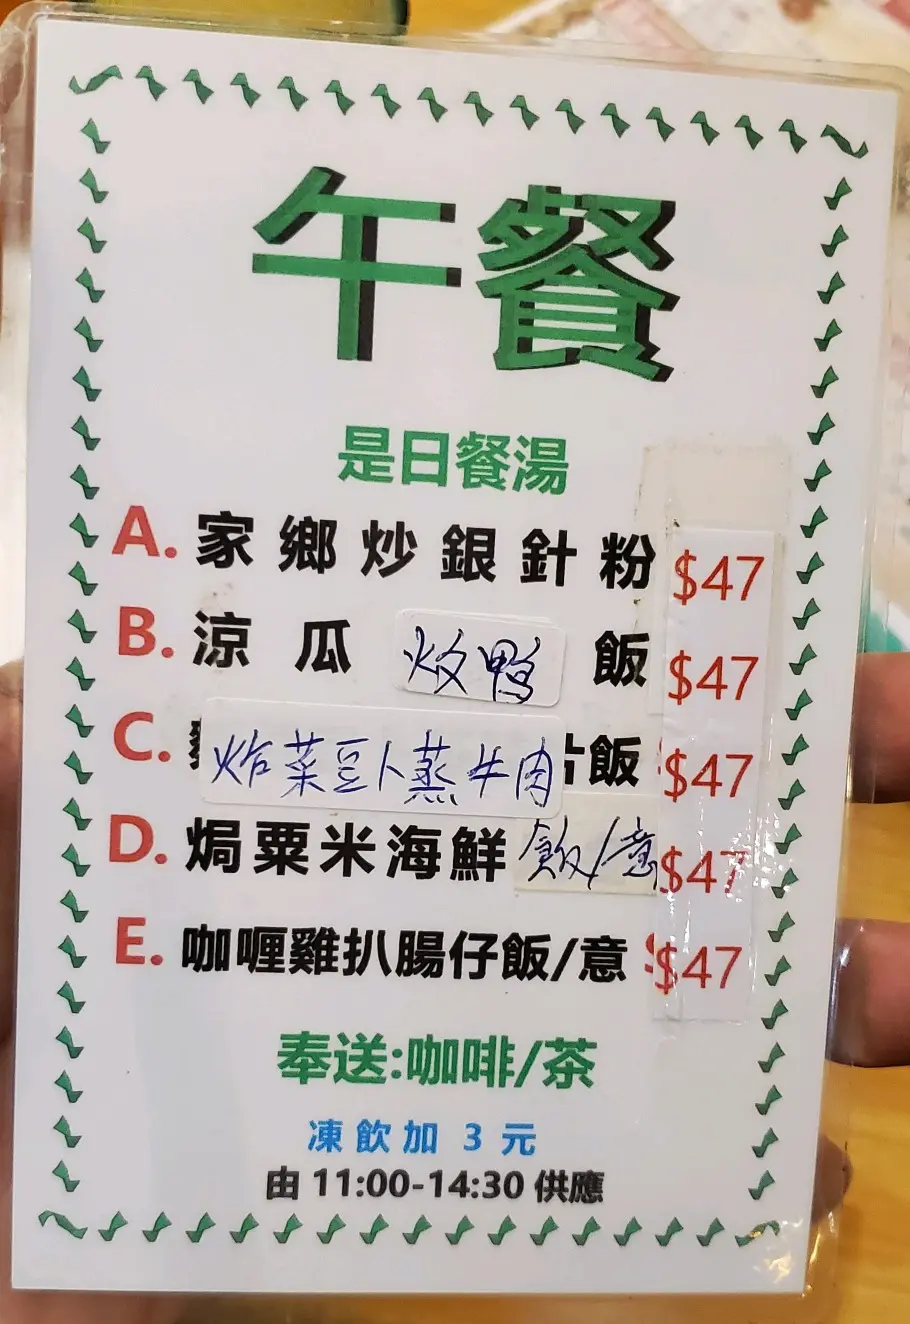 午餐
是日餐湯
A. 家鄉炒銀針粉 $47
B. 涼瓜炆鸭飯 $47
C. 炸菜豆卜蒸牛肉飯 $47
D. 焗粟米海鮮飯/意 $47
E. 咖喱雞扒腸仔飯/意 $47
奉送:咖啡/茶
凍飲加 3 元
由 11:00-14:30 供應